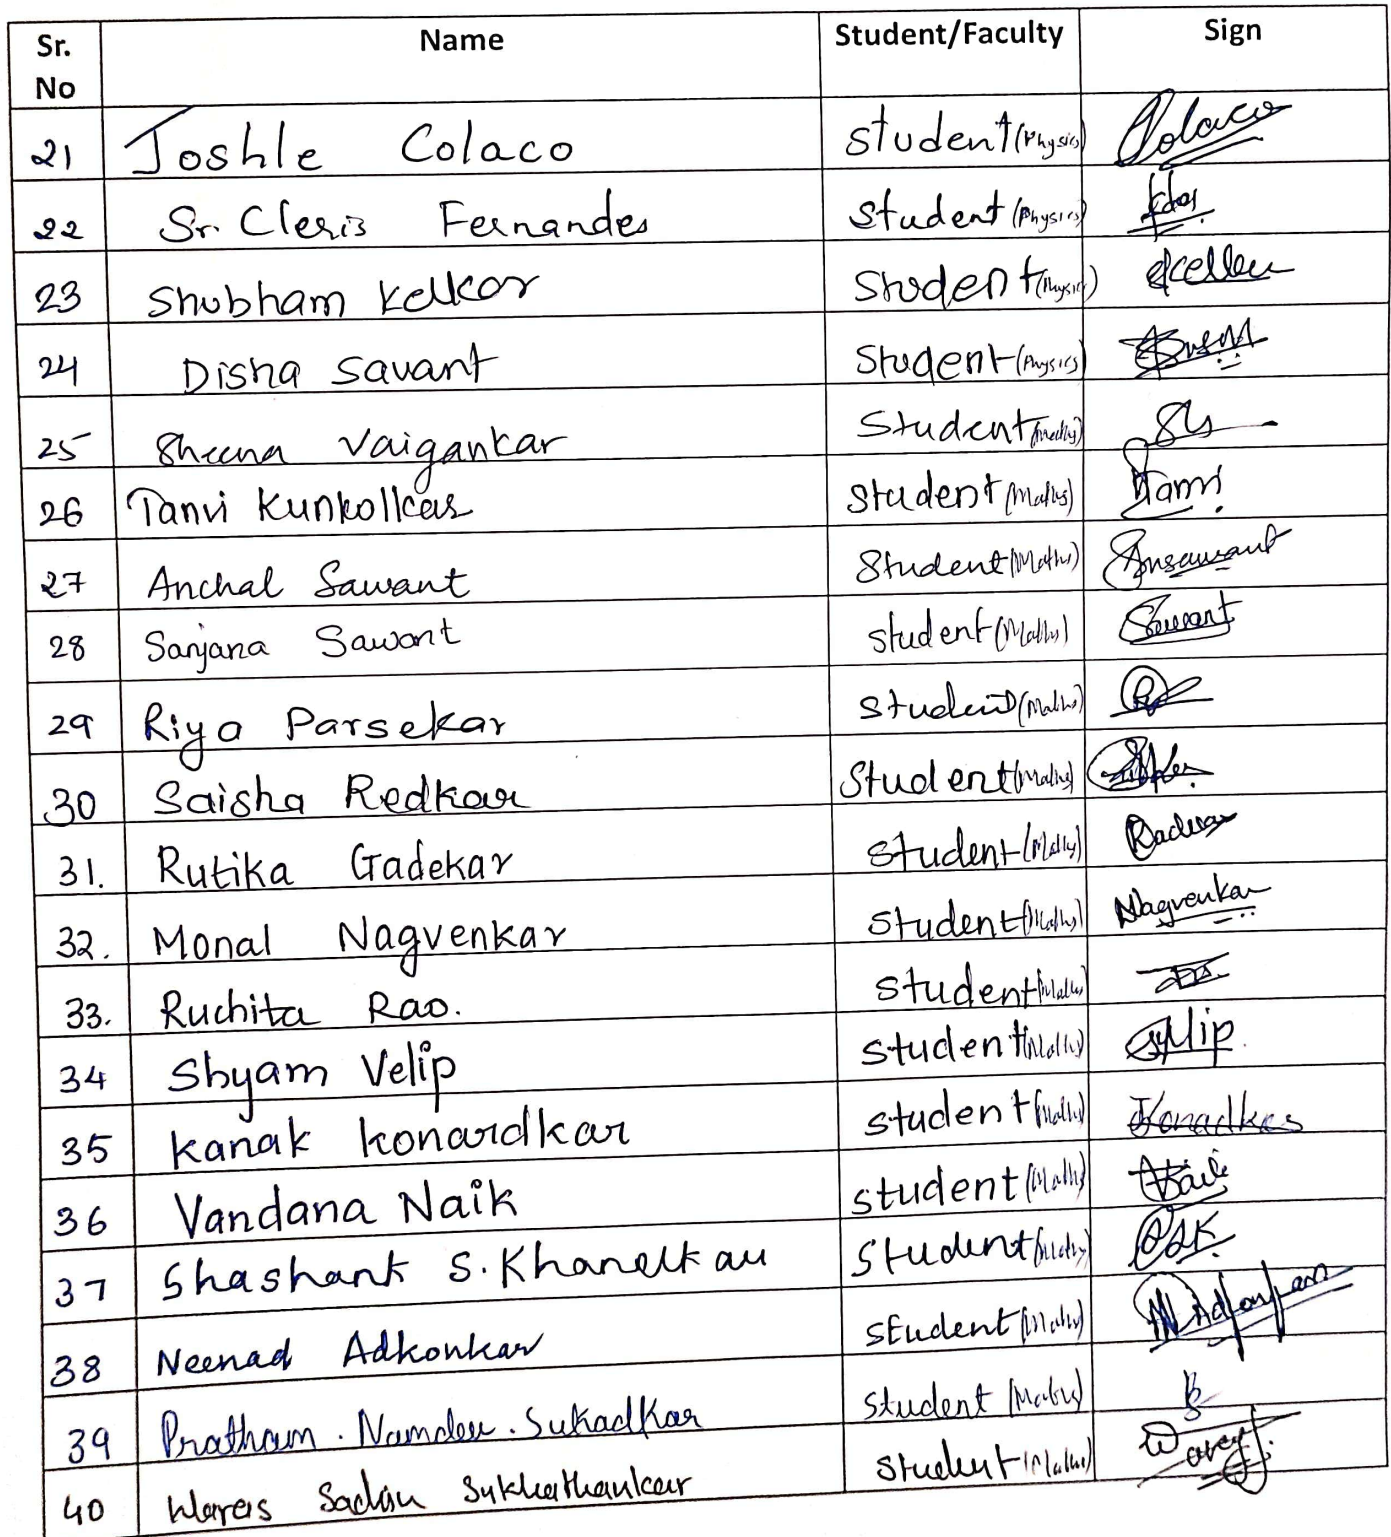 Sr. No Name Student/Faculty Sign
21 Joshle Colaco student (Physics) Colaco
22 Sr. Cleris Fernandes student (Physics)
23 Shubham Kelkar Student (Physics)
24 Disha Savant Student (Physics)
25 Sheena Vaigankar Student
26 Tanvi Kunkolkar student (Maths) Tanvi
27 Anchal Sawant Student (Maths) Ansawant
28 Sanjana Sawant student (Maths) Sawant
29 Riya Parsekar student (Maths)
30 Saisha Redkar Student (Maths)
31. Rutika Gadekar student (Maths)
32. Monal Nagvenkar student (Maths) Nagvenkar
33. Ruchita Rao. student (Maths)
34 Shyam Velip student (Maths)
35 Kanak Konardkar student (Maths)
36 Vandana Naik student (Maths)
37 Shashank S. Khanelkar Student (Maths)
38 Neenad Adkonkar student (Maths)
39 Pratham . Namdev . Sukadkar student (Maths)
40 Sukhathankar student (Maths)